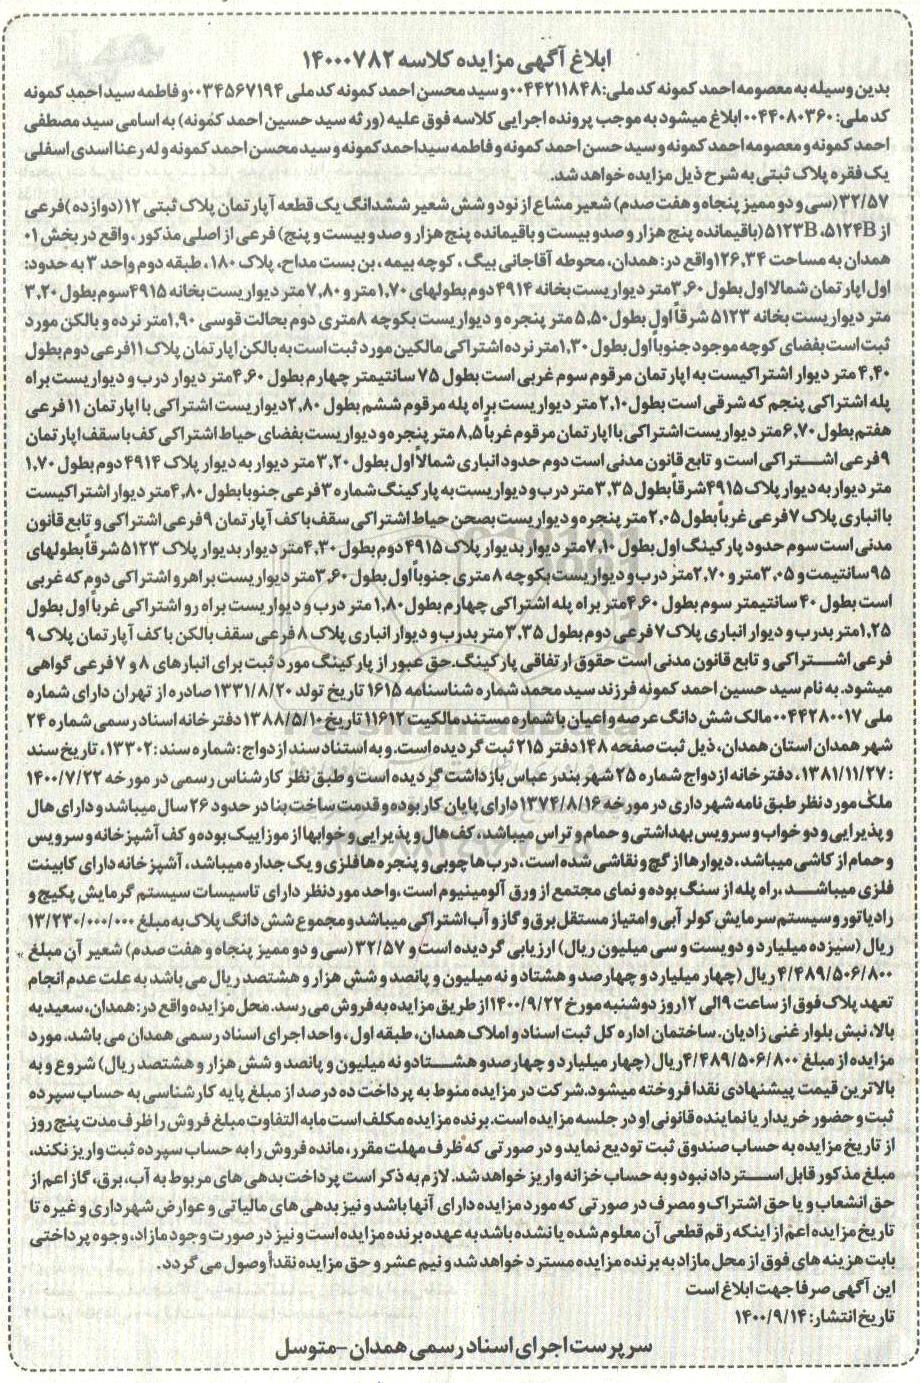 ابلاغ آگهی مزایده کلاسه ۱۴۰۰۰۷۸۲
بدین وسیله به معصومه احمد کمونه کد ملی: ۰۰۴۴۲۱۱۸۴۸ و سید محسن احمد کمونه کد ملی ۰۰۳۴۵۶۷۱۹۴ و فاطمه سید احمد کمونه
کد ملی: ۰۰۴۴۰۸۰۳۶۰ ابلاغ میشود به موجب پرونده اجرایی کلاسه فوق علیه (ورثه سید حسین احمد کمونه) به اسامی سید مصطفی
احمد کمونه و معصومه احمد کمونه و سید حسن احمد کمونه و فاطمه سید احمد کمونه و سید محسن احمد کمونه و له رعنا اسدی اسفلی
یک فقره پلاک ثبتی به شرح ذیل مزایده خواهد شد.
۳۲/۵۷ (سی و دو ممیز پنجاه و هفت صدم) شعیر مشاع از نود و شش شعیر ششدانگ یک قطعه آپارتمان پلاک ثبتی ۱۲ (دوازده) فرعی
از ۵۱۲۴B، ۵۱۲۳B (باقیمانده پنج هزار و صد و بیست و باقیمانده پنج هزار و صد و بیست و پنج) فرعی از اصلی مذکور، واقع در بخش ۰۱
همدان به مساحت ۱۲۶,۳۴ واقع در: همدان، محوطه آقاجانی بیگ، کوچه بیمه، بن بست مداح، پلاک ۱۸۰، طبقه دوم واحد ۳ به حدود:
اول اپارتمان شمالا اول بطول ۳,۶۰ متر دیواریست بخانه ۴۹۱۴ دوم بطولهای ۱,۷۰ متر و ۷,۸۰ متر دیواریست بخانه ۴۹۱۵ سوم بطول ۳,۲۰
متر دیواریست بخانه ۵۱۲۳ شرقاً اول بطول ۵,۵۰ متر پنجره و دیواریست بکوچه ۸ متری دوم بحالت قوسی ۱,۹۰ متر نرده و بالکن مورد
ثبت است بفضای کوچه موجود جنوباً اول بطول ۱,۳۰ متر نرده اشتراکی مالکین مورد ثبت است به بالکن اپارتمان پلاک ۱۱ فرعی دوم بطول
۴,۴۰ متر دیوار اشتراکیست به اپارتمان مرقوم سوم غربی است بطول ۷۵ سانتیمتر چهارم بطول ۴,۶۰ متر دیوار درب و دیواریست براه
پله اشتراکی پنجم که شرقی است بطول ۲,۱۰ متر دیواریست براه پله مرقوم ششم بطول ۲,۸۰ دیواریست اشتراکی با اپارتمان ۱۱ فرعی
هفتم بطول ۶,۷۰ متر دیواریست اشتراکی با اپارتمان مرقوم غرباً ۸,۵ متر پنجره و دیواریست بفضای حیاط اشتراکی کف با سقف اپارتمان
۹ فرعی اشتراکی است و تابع قانون مدنی است دوم حدود انباری شمالاً اول بطول ۳,۲۰ متر دیوار به دیوار پلاک ۴۹۱۴ دوم بطول ۱,۷۰
متر دیوار به دیوار پلاک ۴۹۱۵ شرقاً بطول ۳,۳۵ متر درب و دیواریست به پارکینگ شماره ۳ فرعی جنوبا بطول ۴,۸۰ متر دیوار اشتراکیست
با انباری پلاک ۷ فرعی غرباً بطول ۲,۰۵ متر پنجره و دیواریست بصحن حیاط اشتراکی سقف با کف آپارتمان ۹ فرعی اشتراکی و تابع قانون
مدنی است سوم حدود پارکینگ اول بطول ۷,۱۰ متر دیوار بدیوار پلاک ۴۹۱۵ دوم بطول ۴,۳۰ متر دیوار بدیوار پلاک ۵۱۲۳ شرقاً بطولهای
۹۵ سانتیمت و ۳,۰۵ متر و ۲,۷۰ متر درب و دیواریست بکوچه ۸ متری جنوباً اول بطول ۳,۶۰ متر دیواریست براهرو اشتراکی دوم که غربی
است بطول ۴۰ سانتیمتر سوم بطول ۴,۶۰ متر براه پله اشتراکی چهارم بطول ۱,۸۰ متر درب و دیواریست براه رو اشتراکی غرباً اول بطول
۱,۲۵ متر بدرب و دیوار انباری پلاک ۷ فرعی دوم بطول ۳,۳۵ متر بدرب و دیوار انباری پلاک ۸ فرعی سقف بالکن با کف آپارتمان پلاک ۹
فرعی اشتراکی و تابع قانون مدنی است حقوق ارتفاقی پارکینگ. حق عبور از پارکینگ مورد ثبت برای انبارهای ۸ و ۷ فرعی گواهی
میشود. به نام سید حسین احمد کمونه فرزند سید محمد شماره شناسنامه ۱۶۱۵ تاریخ تولد ۱۳۳۱/۸/۲۰ صادره از تهران دارای شماره
ملی ۰۰۴۴۲۸۰۰۱۷ مالک شش دانگ عرصه و اعیان با شماره مستند مالکیت ۱۱۶۱۲ تاریخ ۱۳۸۸/۵/۱۰ دفترخانه اسناد رسمی شماره ۲۴
شهر همدان استان همدان، ذیل ثبت صفحه ۱۴۸ دفتر ۲۱۵ ثبت گردیده است. و به استناد سند ازدواج: شماره سند: ۱۳۳۰۲، تاریخ سند
: ۱۳۸۱/۱۱/۲۷، دفترخانه ازدواج شماره ۲۵ شهر بندرعباس بازداشت گردیده است و طبق نظر کارشناس رسمی در مورخه ۱۴۰۰/۷/۲۲
ملک مورد نظر طبق نامه شهرداری در مورخه ۱۳۷۴/۸/۱۶ دارای پایان کار بوده و قدمت ساخت بنا در حدود ۲۶ سال میباشد و دارای هال
و پذیرایی و دو خواب و سرویس بهداشتی و حمام و تراس میباشد، کف هال و پذیرایی و خوابها از موزاییک بوده و کف آشپزخانه و سرویس
و حمام از کاشی میباشد، دیوارها از گچ و نقاشی شده است، درب ها چوبی و پنجره ها فلزی و یک جداره میباشد، آشپزخانه دارای کابینت
فلزی میباشد، راه پله از سنگ بوده و نمای مجتمع از ورق آلومینیوم است، واحد مورد نظر دارای تاسیسات سیستم گرمایش پکیج و
رادیاتور و سیستم سرمایش کولر آبی و امتیاز مستقل برق و گاز و آب اشتراکی میباشد و مجموع شش دانگ پلاک به مبلغ ۱۳/۲۳۰/۰۰۰/۰۰۰
ریال (سیزده میلیارد و دویست و سی میلیون ریال) ارزیابی گردیده است و ۳۲/۵۷ (سی و دو ممیز پنجاه و هفت صدم) شعیر آن مبلغ
۴/۴۸۹/۵۰۶/۸۰۰ ریال (چهار میلیارد و چهارصد و هشتاد و نه میلیون و پانصد و شش هزار و هشتصد ریال می باشد به علت عدم انجام
تعهد پلاک فوق از ساعت ۹ الی ۱۲ روز دوشنبه مورخ ۱۴۰۰/۹/۲۲ از طریق مزایده به فروش می رسد. محل مزایده واقع در: همدان، سعیدیه
بالا، نبش بلوار غنی زادیان. ساختمان اداره کل ثبت اسناد و املاک همدان، طبقه اول، واحد اجرای اسناد رسمی همدان می باشد. مورد
مزایده از مبلغ ۴/۴۸۹/۵۰۶/۸۰۰ ریال (چهار میلیارد و چهارصد و هشتاد و نه میلیون و پانصد و شش هزار و هشتصد ریال) شروع و به
بالاترین قیمت پیشنهادی نقدا فروخته میشود. شرکت در مزایده منوط به پرداخت ده درصد از مبلغ پایه کارشناسی به حساب سپرده
ثبت و حضور خریدار یا نماینده قانونی او در جلسه مزایده است. برنده مزایده مکلف است مابه التفاوت مبلغ فروش را ظرف مدت پنج روز
از تاریخ مزایده به حساب صندوق ثبت تودیع نماید و در صورتی که ظرف مهلت مقرر، مانده فروش را به حساب سپرده ثبت واریز نکند،
مبلغ مذکور قابل استرداد نبود و به حساب خزانه واریز خواهد شد. لازم به ذکر است پرداخت بدهی های مربوط به آب، برق، گاز اعم از
حق انشعاب و یا حق اشتراک و مصرف در صورتی که مورد مزایده دارای آنها باشد و نیز بدهی های مالیاتی و عوارض شهرداری و غیره تا
تاریخ مزایده اعم از اینکه رقم قطعی آن معلوم شده یا نشده باشد به عهده برنده مزایده است و نیز در صورت وجود مازاد، وجوه پرداختی
بابت هزینه های فوق از محل مازاد به برنده مزایده مسترد خواهد شد و نیم عشر و حق مزایده نقداً وصول می گردد.
این آگهی صرفا جهت ابلاغ است
تاریخ انتشار: ۱۴۰۰/۹/۱۴
سرپرست اجرای اسناد رسمی همدان - متوسل